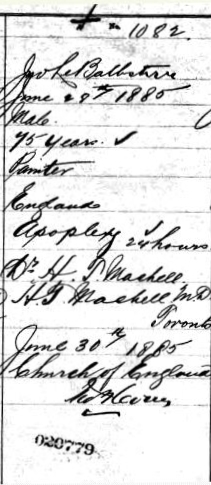 1082.
Balbstire
June 28th 1885
Male.
75 years. ✓
Painter
England
Apoplexy ✓ 24 hours
Dr. H. T. Machell.
H. T. Machell M.D
Toronto
June 30th 1885
Church of England
020779